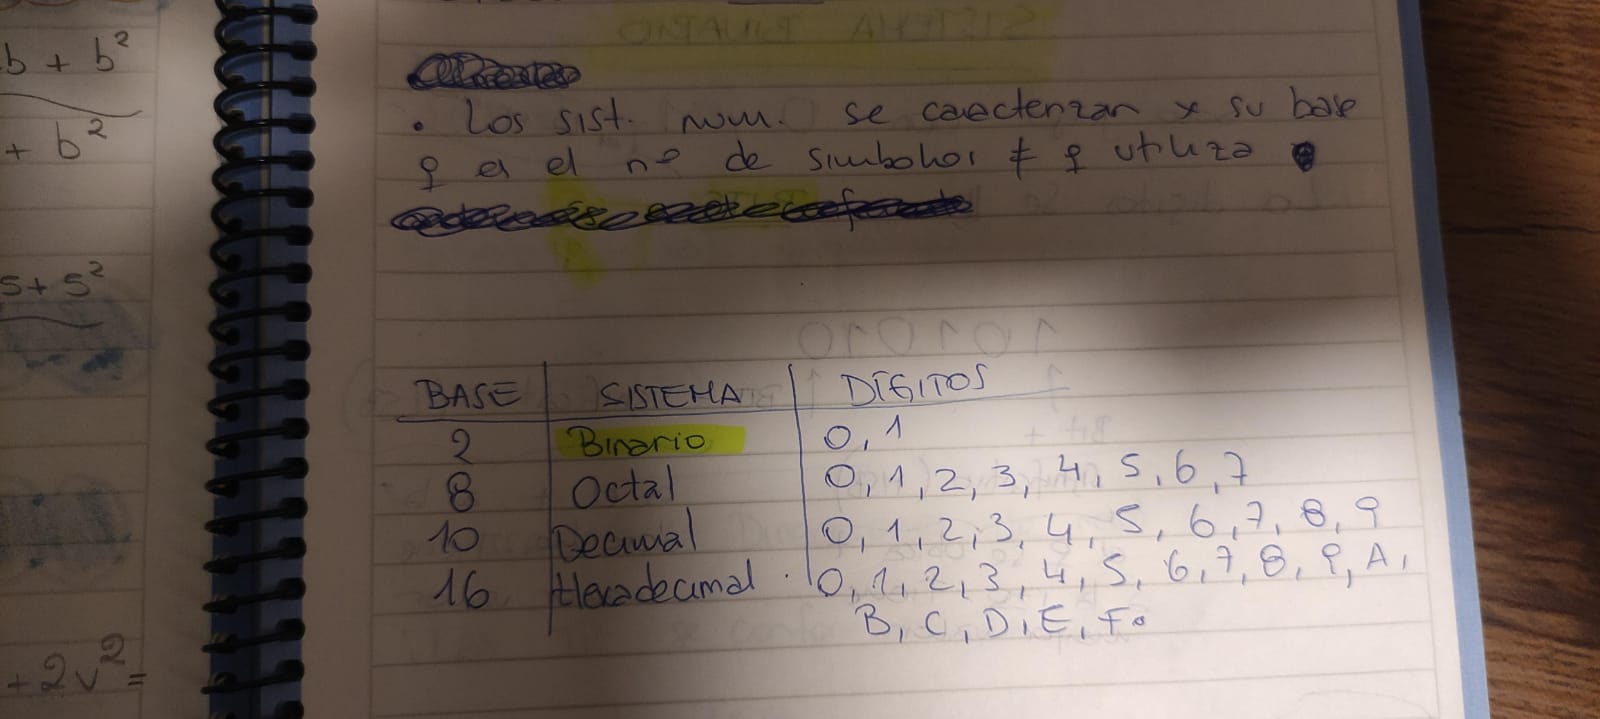 b + b²
+ b²
5 + 5²
+ 2v² =
• Los sist. num. se caracterizan x su base
q es el nº de simbolos ≠ q utiliza
BASE SISTEMA DÍGITOS
2 Binario 0, 1
8 Octal 0, 1, 2, 3, 4, 5, 6, 7
10 Decimal 0, 1, 2, 3, 4, 5, 6, 7, 8, 9
16 Hexadecimal. 0, 1, 2, 3, 4, 5, 6, 7, 8, 9, A,
B, C, D, E, F.